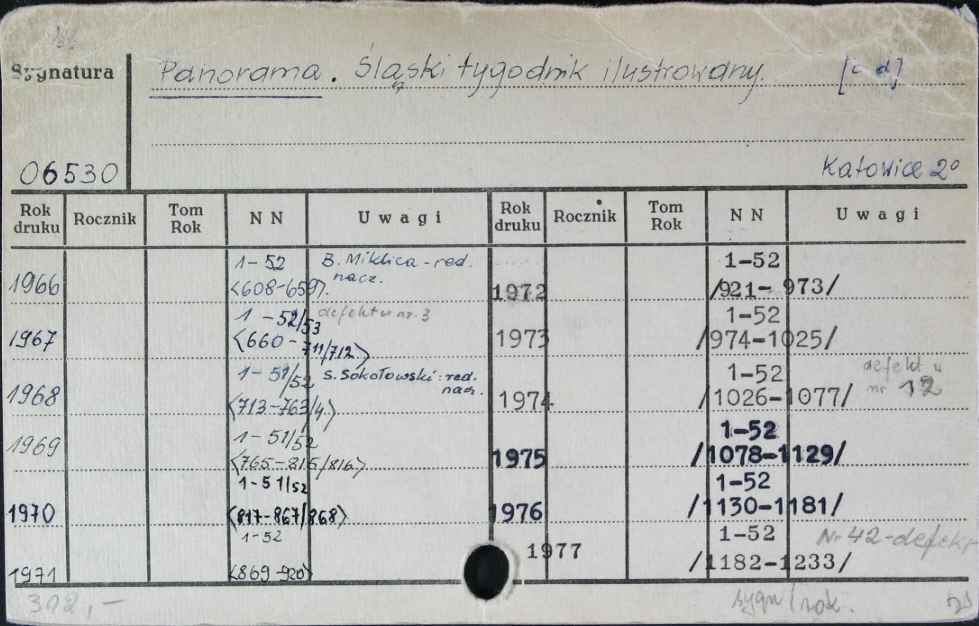 Sygnatura
Panorama. Śląski tygodnik ilustrowany. [c.d]
06530
Katowice 2°
Rok druku Rocznik Tom Rok NN Uwagi Rok druku Rocznik Tom Rok NN Uwagi
1966 1-52 B. Miklica - red. nacz.
<608-659>.
1967 1-52/53 defekt w nr. 3
<660-711/712>
1968 1-51/52 S. Sokołowski - red. nacz.
<713-763/4>
1969 1-51/52
<765-815/816>
1970 1-51/52
<817-867/868>
1971 1-52
<869-920>
1972 1-52
/921-973/
1973 1-52
/974-1025/
1974 1-52 defekt w nr 12
/1026-1077/
1975 1-52
/1078-1129/
1976 1-52
/1130-1181/
1977 1-52 Nr 42-defekt
/1182-1233/
312,-
sygn/rok.